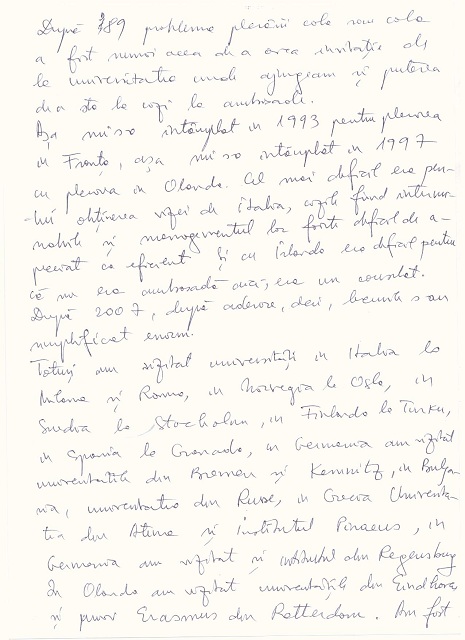 După '89 problema plecării colo sau colo
a fost numai aceea de a avea invitație de
la universitatea unde ajungeam și puterea
de a sta la cozi la ambasade.
Așa mi s-a întâmplat în 1993 pentru plecarea
in Franța, așa mi s-a întâmplat in 1997
cu plecarea in Olanda. Cel mai dificil era pen-
-tru obținerea vizei de Italia, cozile fiind intermi-
nabile și managementul lor foarte dificil de a-
preciat ca eficient. Și cu Irlanda era dificil pentru
că nu era ambasadă aici, era un consulat.
După 2007, după aderare, deci, lucrurile s-au
simplificat enorm.
Totuși am vizitat universități in Italia la
Milano și Roma, in Norvegia la Oslo, in
Suedia la Stockholm, in Finlanda la Turku,
in Spania la Granada, in Germania am vizitat
universitățile din Bremen și Kemnitz, in Bulga-
ria, universitatea din Ruse, in Grecia Universita-
tea din Atena și Institutul Piraeus, in
Germania am vizitat și institutul din Regensburg
In Olanda am vizitat universitățile din Eindhoven
și Erasmus din Rotterdam. Am fost